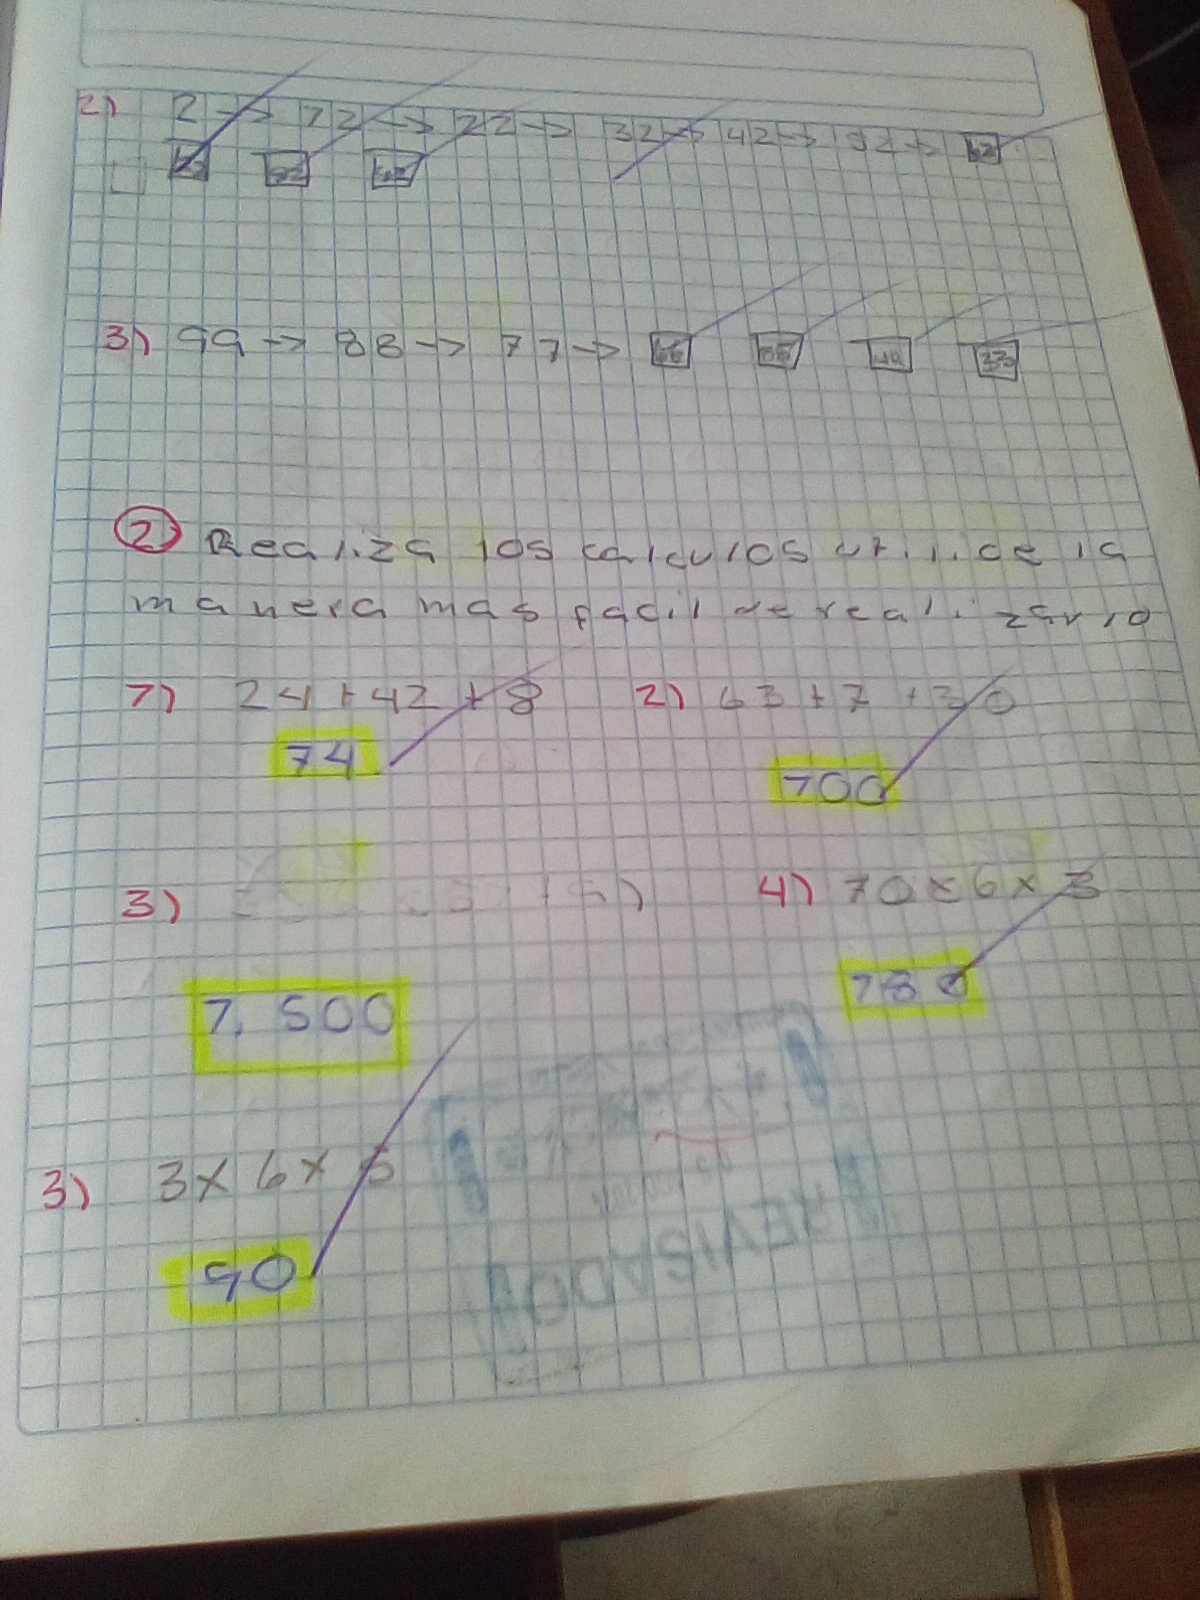 2) 2 → 12 → 22 → 32 → 42 → 52 → 62
3) 99 → 88 → 77 → 66 55 44 33
2) Realiza los calculos utilice la
manera mas facil de realizarlo
1) 24 + 42 + 8 2) 63 + 7 + 30
74 100
3) 4) 10 x 6 x 3
1.500 180
3) 3 x 6 x 5
90
REVISADO